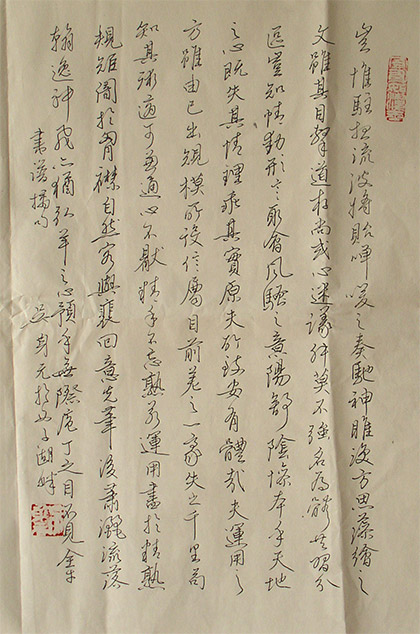 豈惟駐想流波將貽嘽喛之奏馳神睢渙方思藻繪之
文雖其目擊道存尚或心迷議舛莫不強名為體共習分
區豈知情動形言取會風騷之意陽舒陰慘本乎天地
之心既失其情理乖其實原夫所致安有體哉夫運用之
方雖由己出規模所設信屬目前差之一豪失之千里苟
知其術適可兼通心不厭精手不忘熟若運用盡於精熟
規矩闇於胸襟自然容與裴回意先筆後瀟灑流落
翰逸神飛亦猶弘羊之心預乎無際庖丁之目不見全牛
書譜摘句
吳身元於湖畔